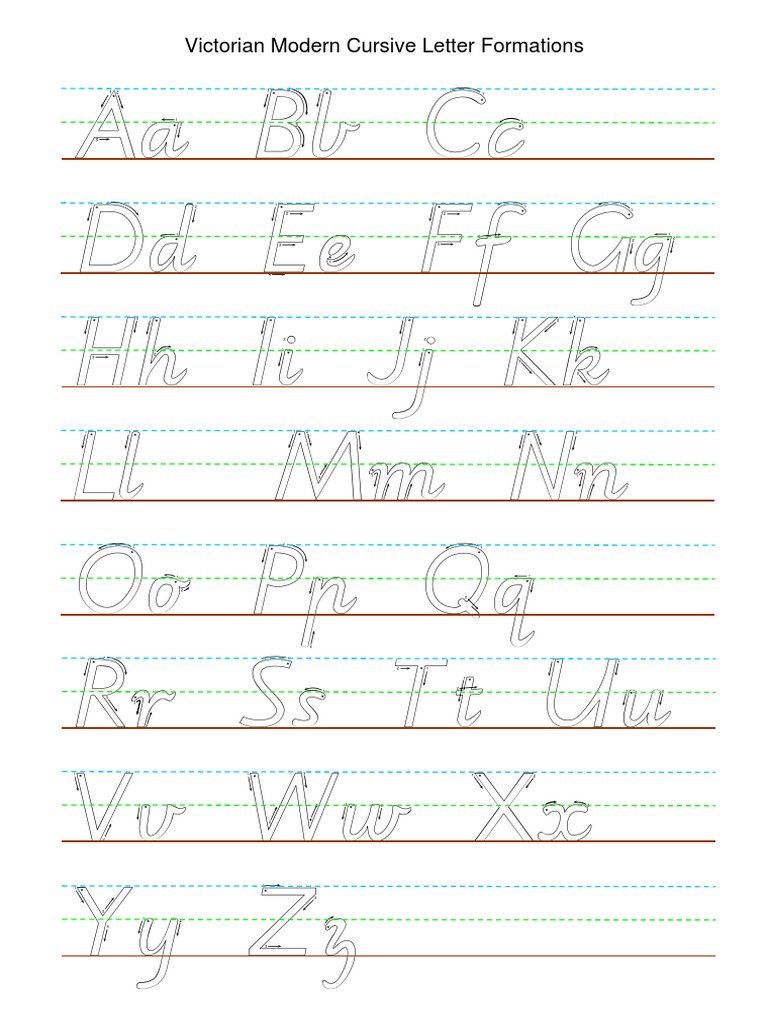 Victorian Modern Cursive Letter Formations
Aa Bb Cc
Dd Ee Ff Gg
Hh Ii Jj Kk
Ll Mm Nn
Oo Pp Qq
Rr Ss Tt Uu
Vv Ww Xx
Yy Zz